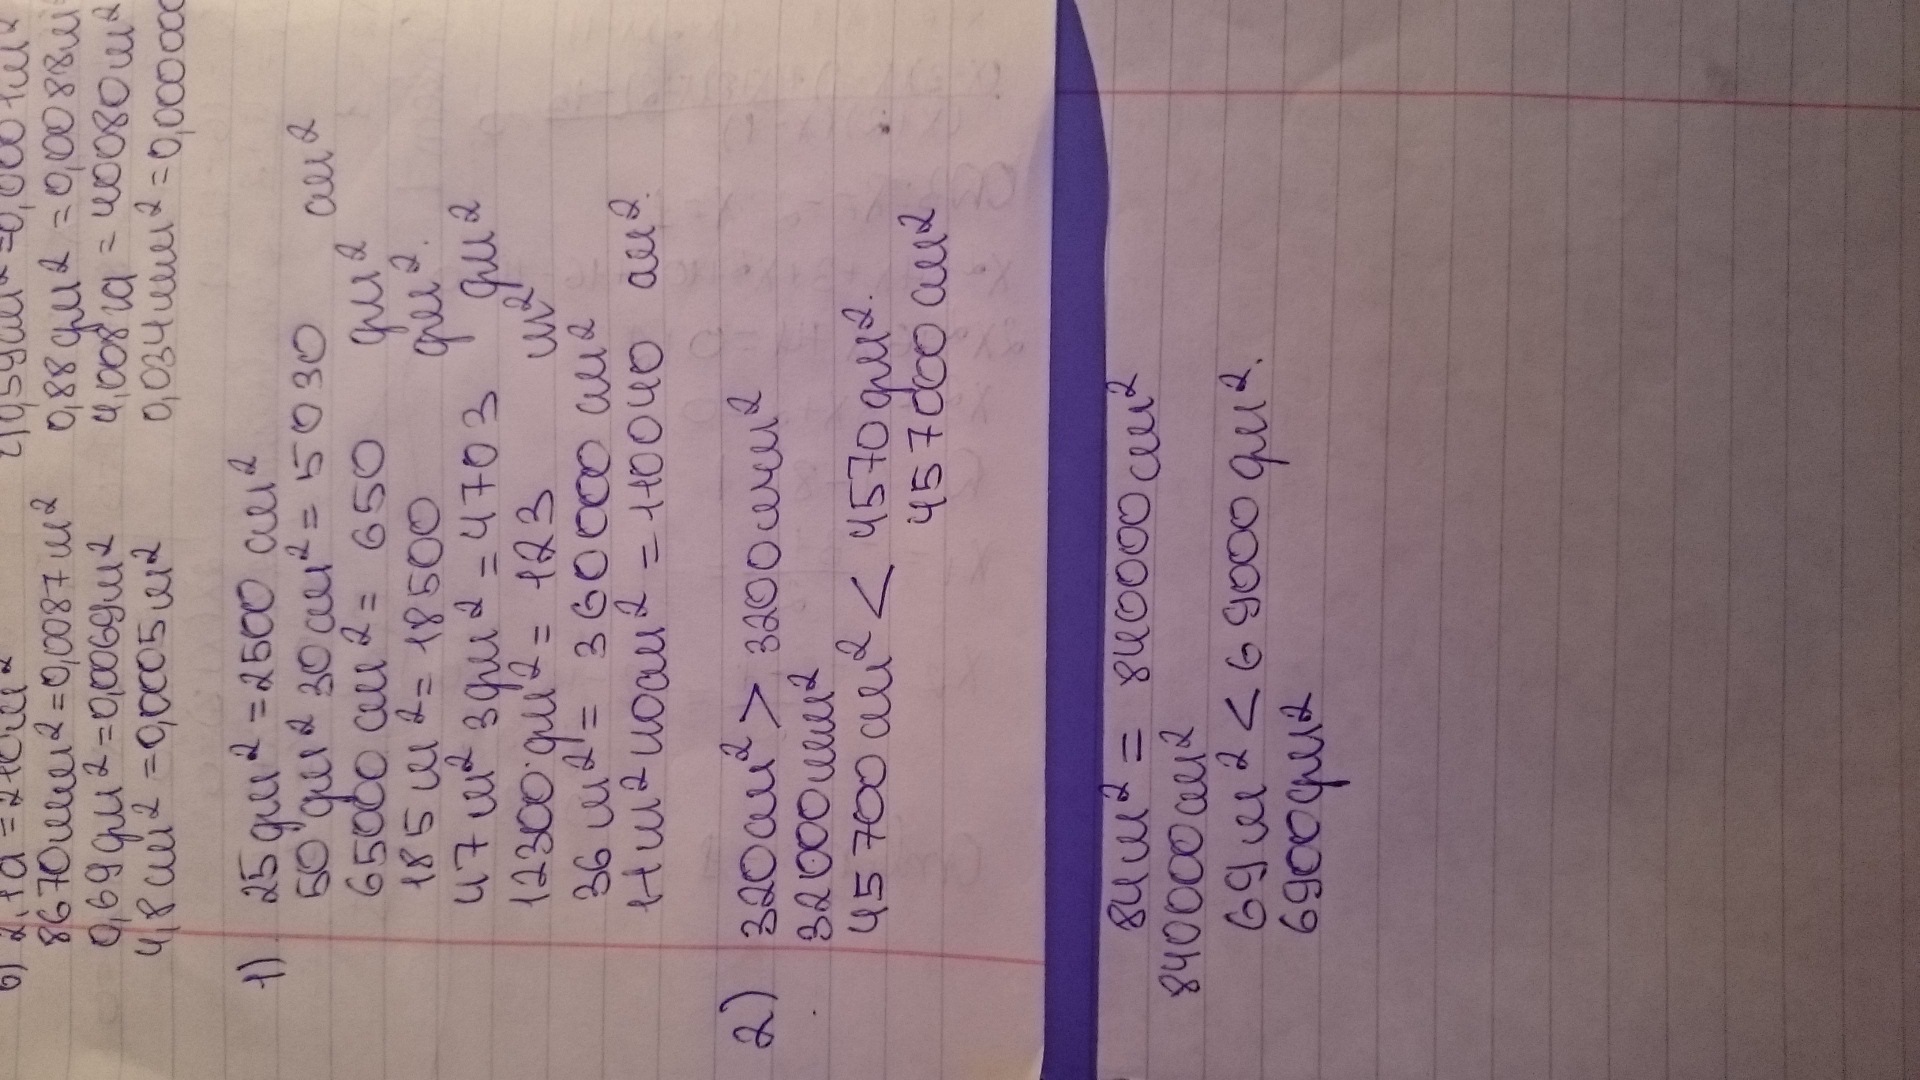 б) 2,1а = 210м²
8670мм² = 0,0087м²
0,69дм² = 0,0069м²
4,8см² = 0,0005м²
0,88дм² = 0,0088м²
4,008га = 40080м²
0,034мм² = 0,00000
1) 25дм² = 2500 см²
50 дм² 30см² = 5030 см²
65000 см² = 650 дм²
185 м² = 18500 дм².
47 м² 3дм² = 4703 дм²
12300 дм² = 123 м²
36 м² = 360000 см²
11м² 40см² = 110040 см².
2) 320см² > 3200мм²
32000мм²
45700см² < 4570дм².
457000см²
84м² = 840000см²
840000см²
69м² < 69000дм².
6900дм²